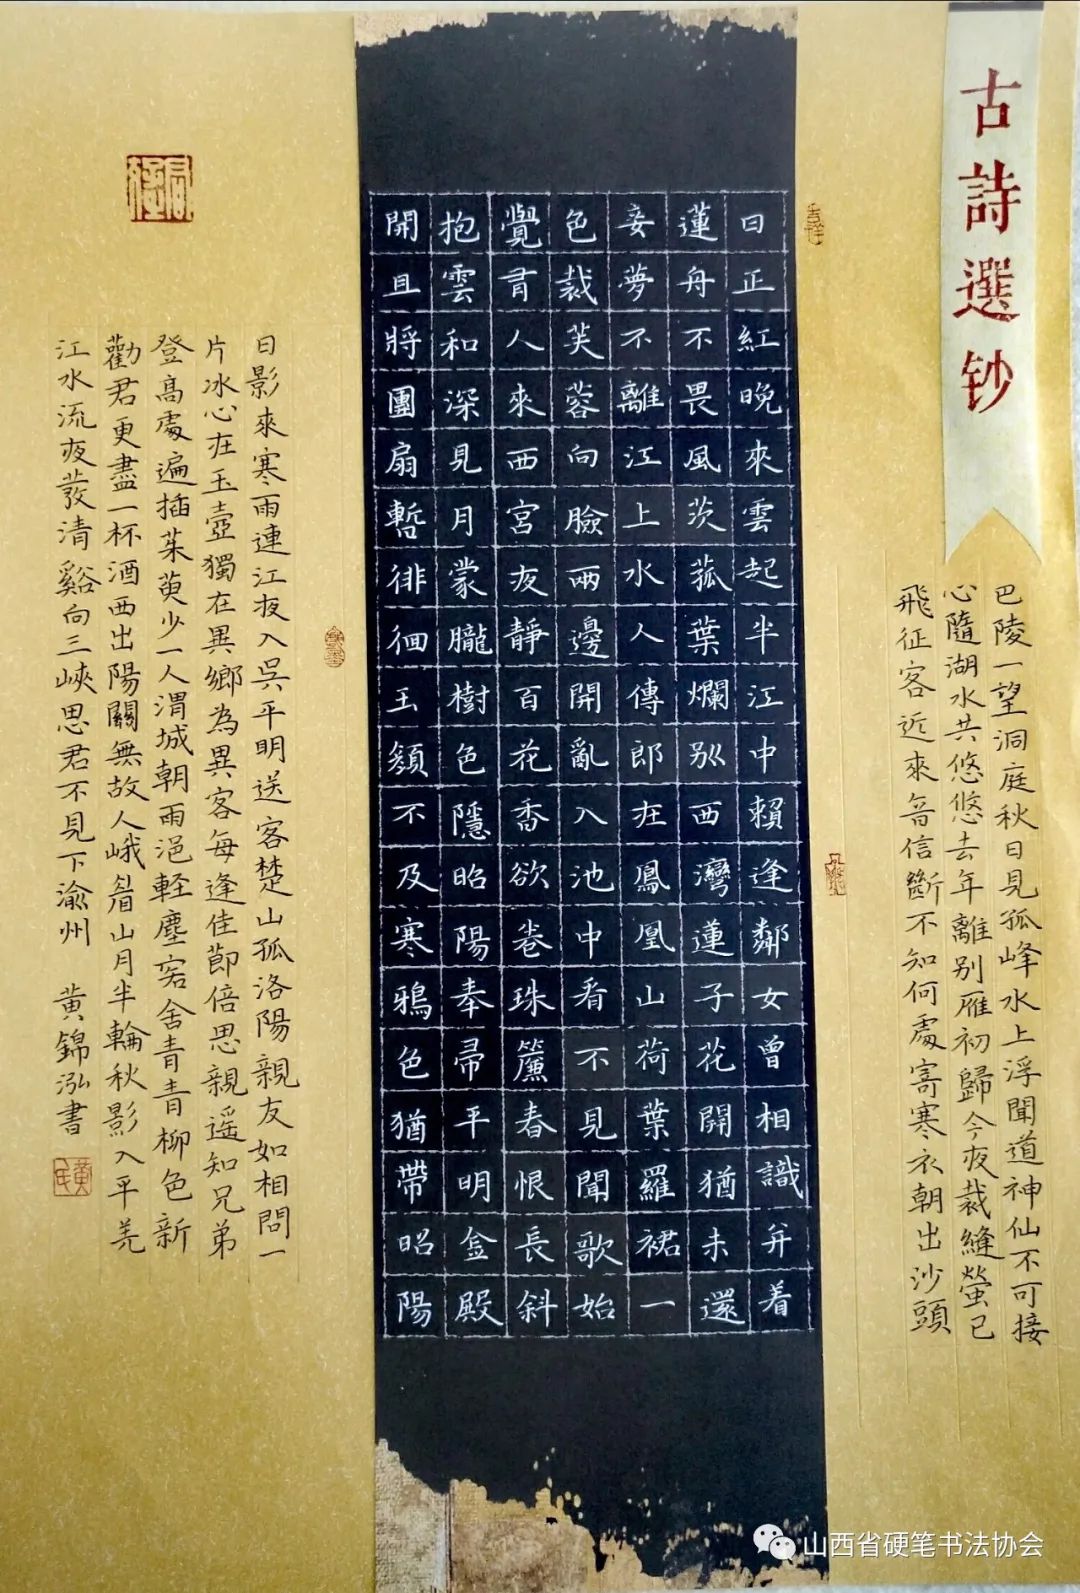 古詩選鈔
巴陵一望洞庭秋日見孤峰水上浮聞道神仙不可接
心隨湖水共悠悠去年離别雁初歸今夜裁縫螢已
飛征客近來音信斷不知何處寄寒衣朝出沙頭
日正紅晚來雲起半江中賴逢鄰女曾相識并着
蓮舟不畏風茨菰葉爛别西灣蓮子花開猶未還
妾夢不離江上水人傳郎在鳳凰山荷葉羅裙一
色裁芙蓉向臉兩邊開亂入池中看不見聞歌始
覺有人來西宮夜靜百花香欲卷珠簾春恨長斜
抱雲和深見月朦朧樹色隱昭陽奉帚平明金殿
開且將團扇暫徘徊玉顏不及寒鴉色猶帶昭陽
日影來寒雨連江夜入吳平明送客楚山孤洛陽親友如相問一
片冰心在玉壺獨在異鄉為異客每逢佳節倍思親遥知兄弟
登高處遍插茱萸少一人渭城朝雨浥軽塵客舍青青柳色新
勸君更盡一杯酒西出陽關無故人峨眉山月半輪秋影入平羌
江水流夜發清谿向三峽思君不見下渝州 黄錦泓書
山西省硬笔书法协会